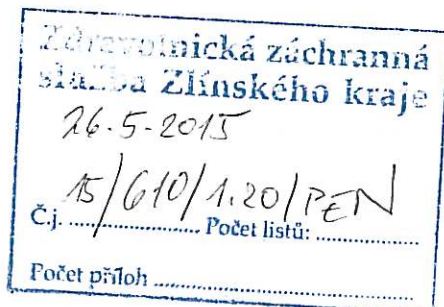 Zdravotnická záchranná
služba Zlínského kraje
26.5.2015
15/610/1.20/PEN
Č.j. .................... Počet listů: ....................
Počet příloh ....................